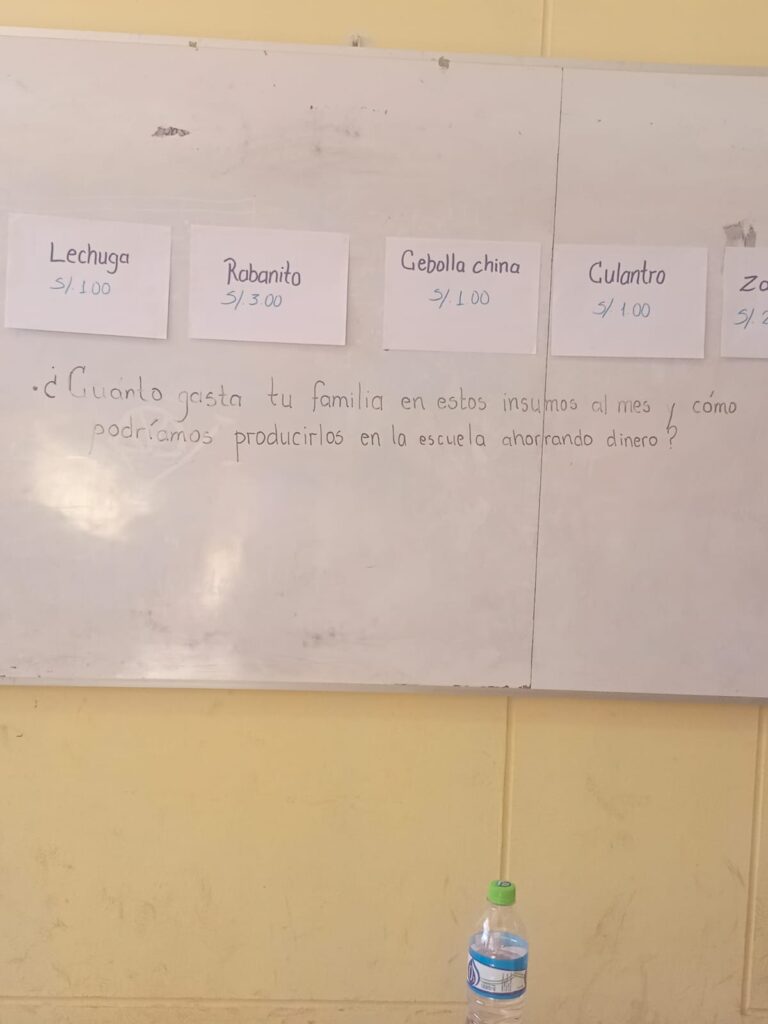 Lechuga
S/. 1.00
Rabanito
S/. 3.00
Cebolla china
S/. 1.00
Culantro
S/. 1.00
. ¿Cuánto gasta tu familia en estos insumos al mes y cómo
podríamos producirlos en la escuela ahorrando dinero?